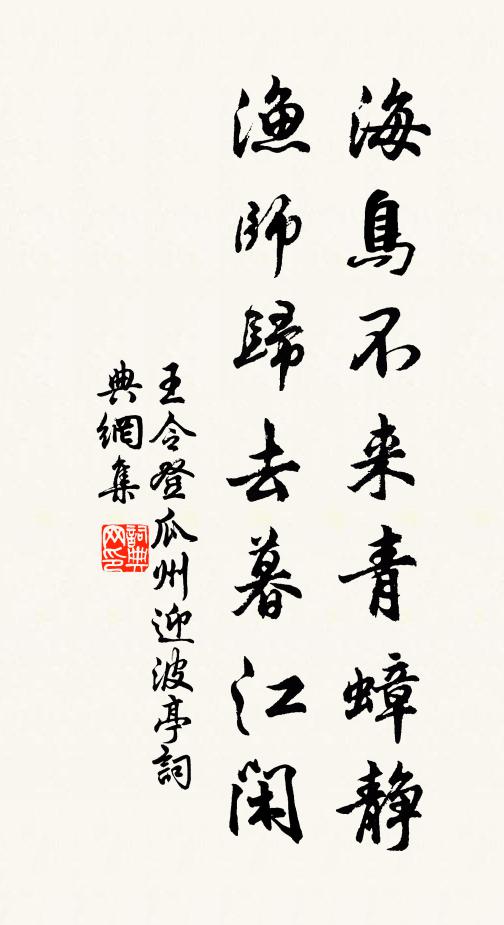 海鳥不来青蟑静
漁師歸去暮江閑
王令登瓜州迎波亭詞
典網集
詞典
网印